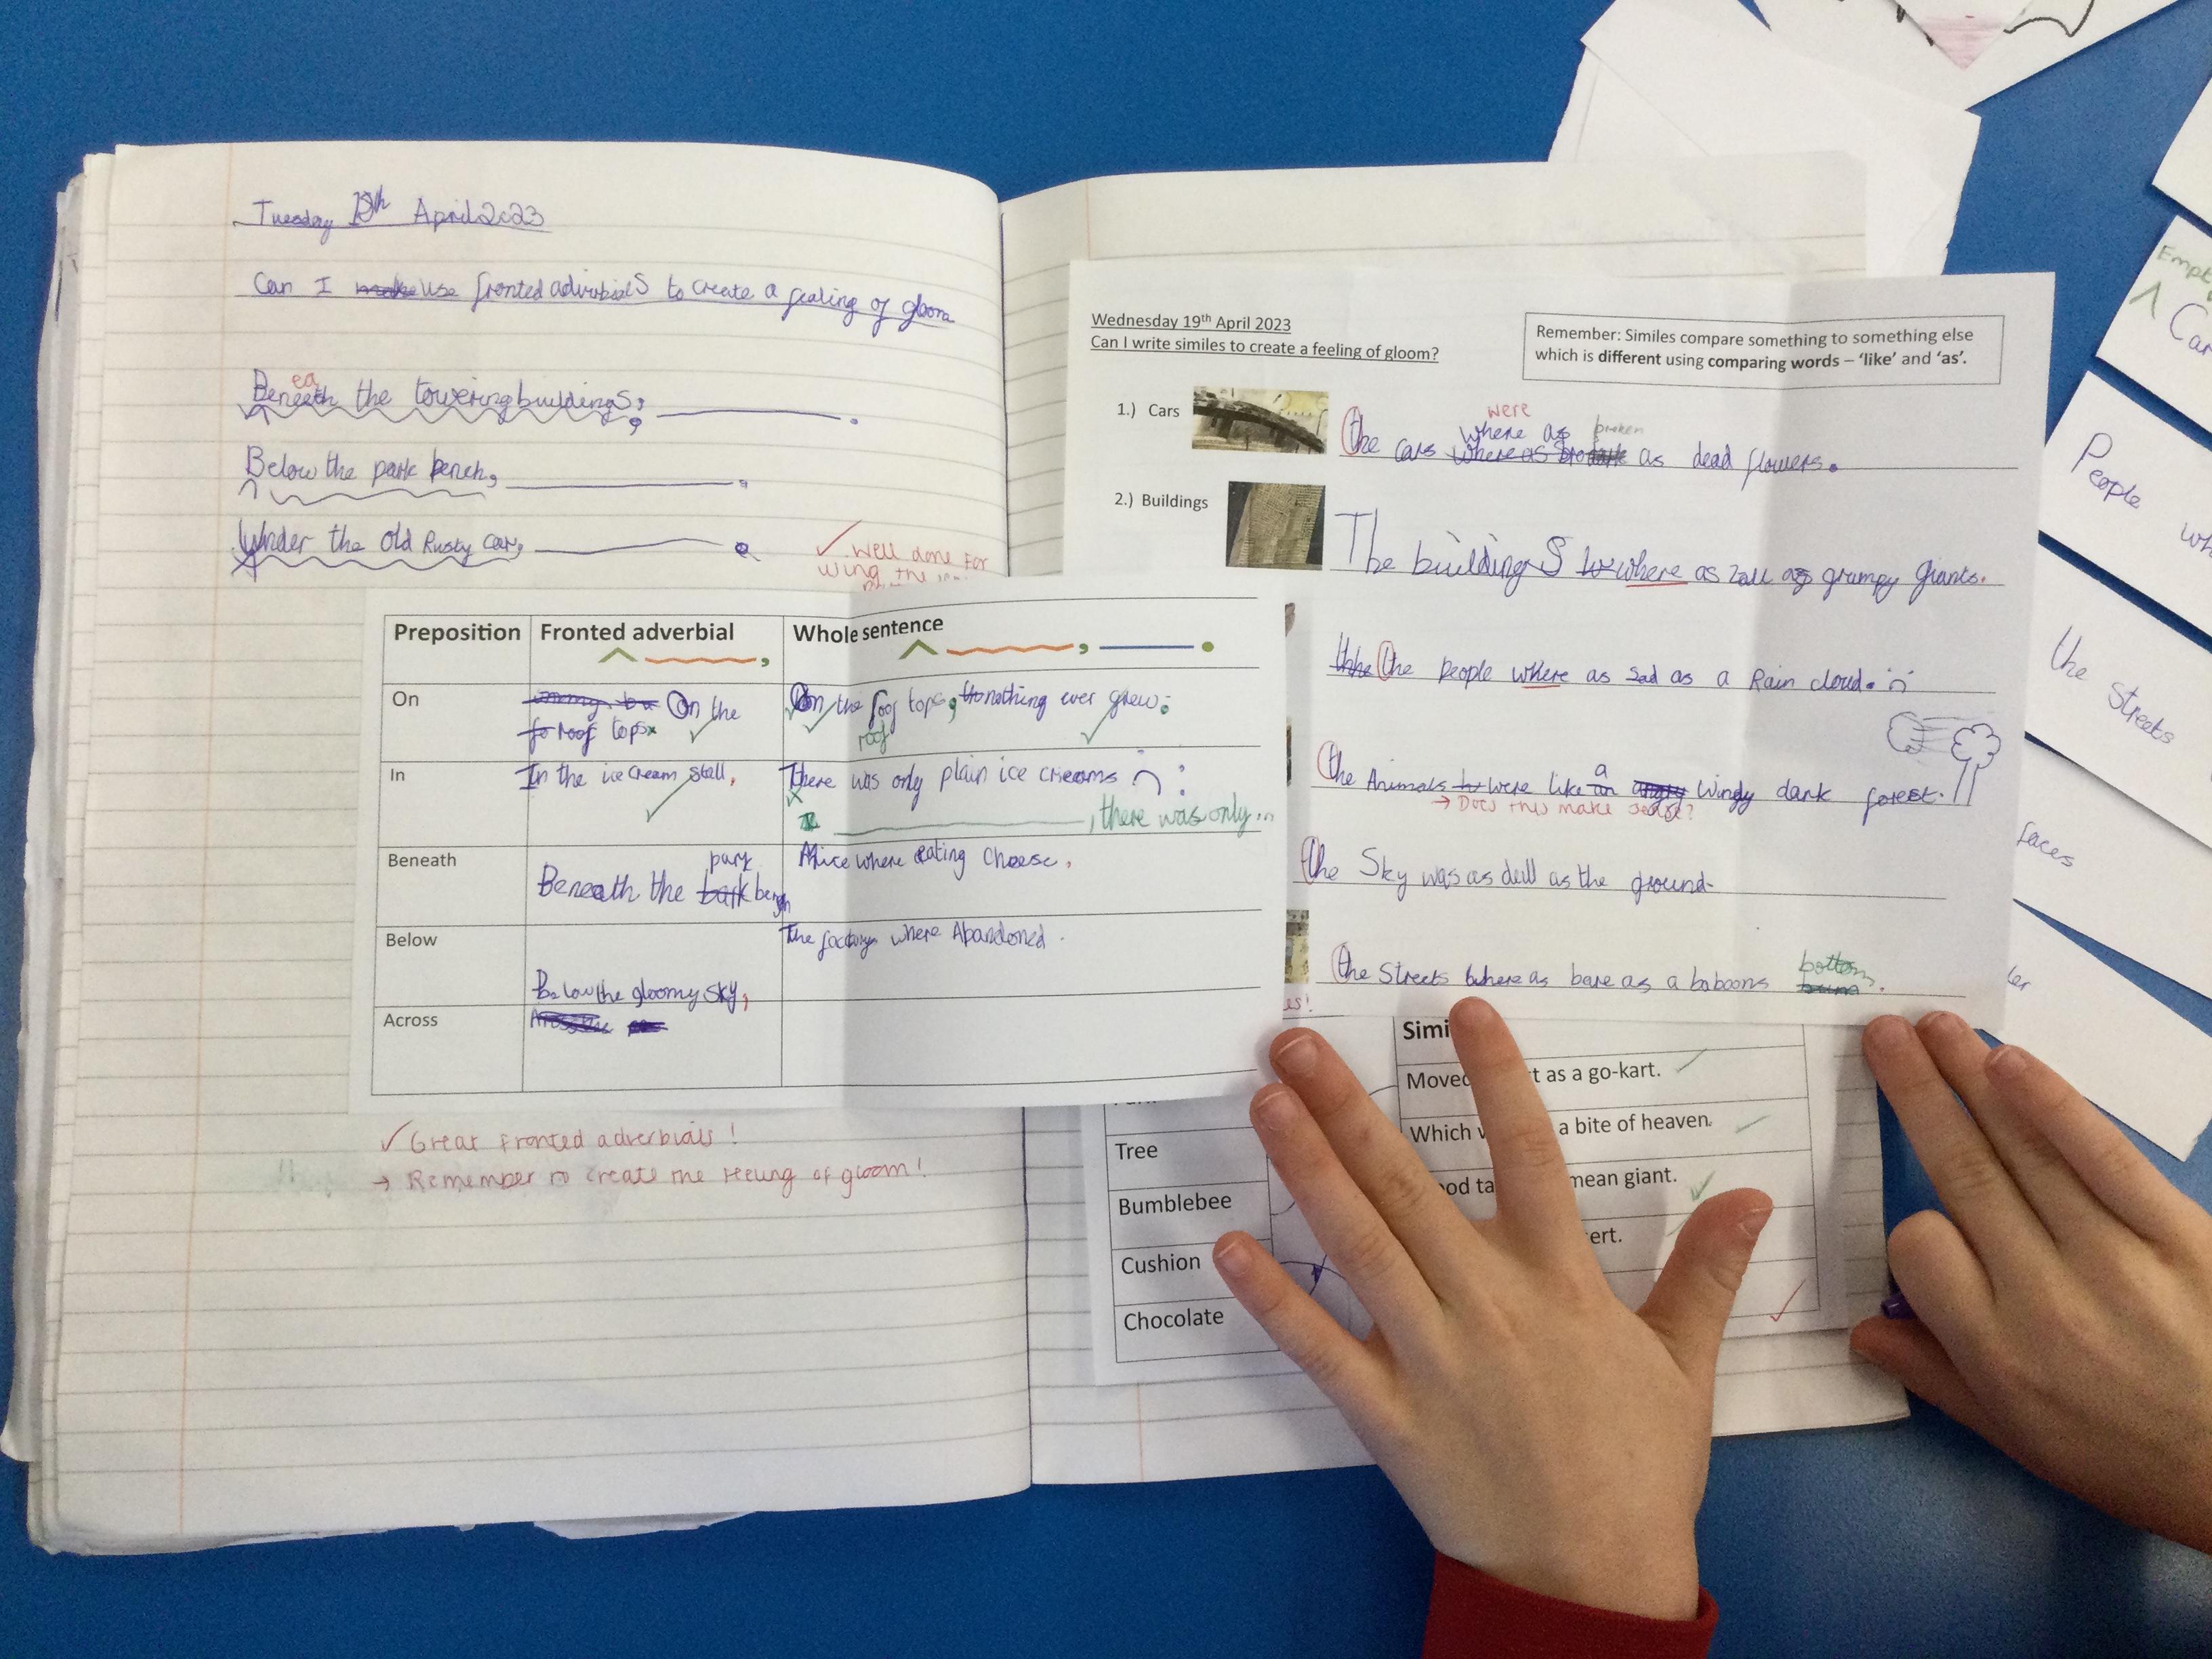 Tuesday 18th April 2023
Can I make use fronted adverbials to create a fealing of gloom
ea
Beneath the towering buildings,
Below the park bench,
Under the old Rusty car,
✓ Well done for
the
Preposition Fronted adverbial Whole sentence
On
On the
roof tops
On the roof tops, nothing ever grew.
roof
In
In the ice cream stall,
There was only plain ice creams
, there was only...
Beneath
park
Beneath the bench
Mice where eating cheese,
Below
Below the gloomy sky,
The factorys where Abandoned.
Across
✓ Great fronted adverbials!
→ Remember to create the feeling of gloom!
Wednesday 19th April 2023
Can I write similes to create a feeling of gloom?
Remember: Similes compare something to something else
which is different using comparing words – ‘like’ and ‘as’.
1.) Cars
were
where as broken
the cars where as as dead flowers.
2.) Buildings
The buildings where as tall as grumpy giants.
the people where as sad as a Rain cloud.
a
the Animals were like an angry windy dark forest.
→ Does this make sense?
the Sky was as dull as the ground
bottom
the Streets where as bare as a baboons bum.
es!
Simi
Moved t as a go-kart.
Which a bite of heaven.
ood ta mean giant.
ert.
Tree
Bumblebee
Cushion
Chocolate
Empt
Car
People
wh
the Streets
faces